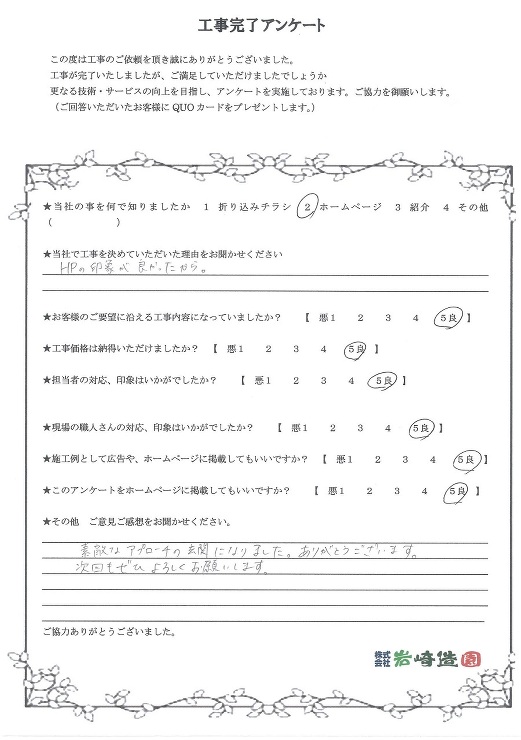 工事完了アンケート
この度は工事のご依頼を頂き誠にありがとうございました。
工事が完了いたしましたが、ご満足していただけましたでしょうか
更なる技術・サービスの向上を目指し、アンケートを実施しております。ご協力を御願いします。
（ご回答いただいたお客様に QUO カードをプレゼントします。）
★当社の事を何で知りましたか 1 折り込みチラシ 2 ホームページ 3 紹介 4 その他
（ ）
★当社で工事を決めていただいた理由をお聞かせください
HPの印象が良かったから。
★お客様のご要望に沿える工事内容になっていましたか？ 【 悪1 2 3 4 5良 】
★工事価格は納得いただけましたか？ 【 悪1 2 3 4 5良 】
★担当者の対応、印象はいかがでしたか？ 【 悪1 2 3 4 5良 】
★現場の職人さんの対応、印象はいかがでしたか？ 【 悪1 2 3 4 5良 】
★施工例として広告や、ホームページに掲載してもいいですか？ 【 悪1 2 3 4 5良 】
★このアンケートをホームページに掲載してもいいですか？ 【 悪1 2 3 4 5良 】
★その他 ご意見ご感想をお聞かせください。
素敵なアプローチの玄関になりました。ありがとうございます。
次回もぜひよろしくお願いします。
ご協力ありがとうございました。
株式会社 岩崎造園